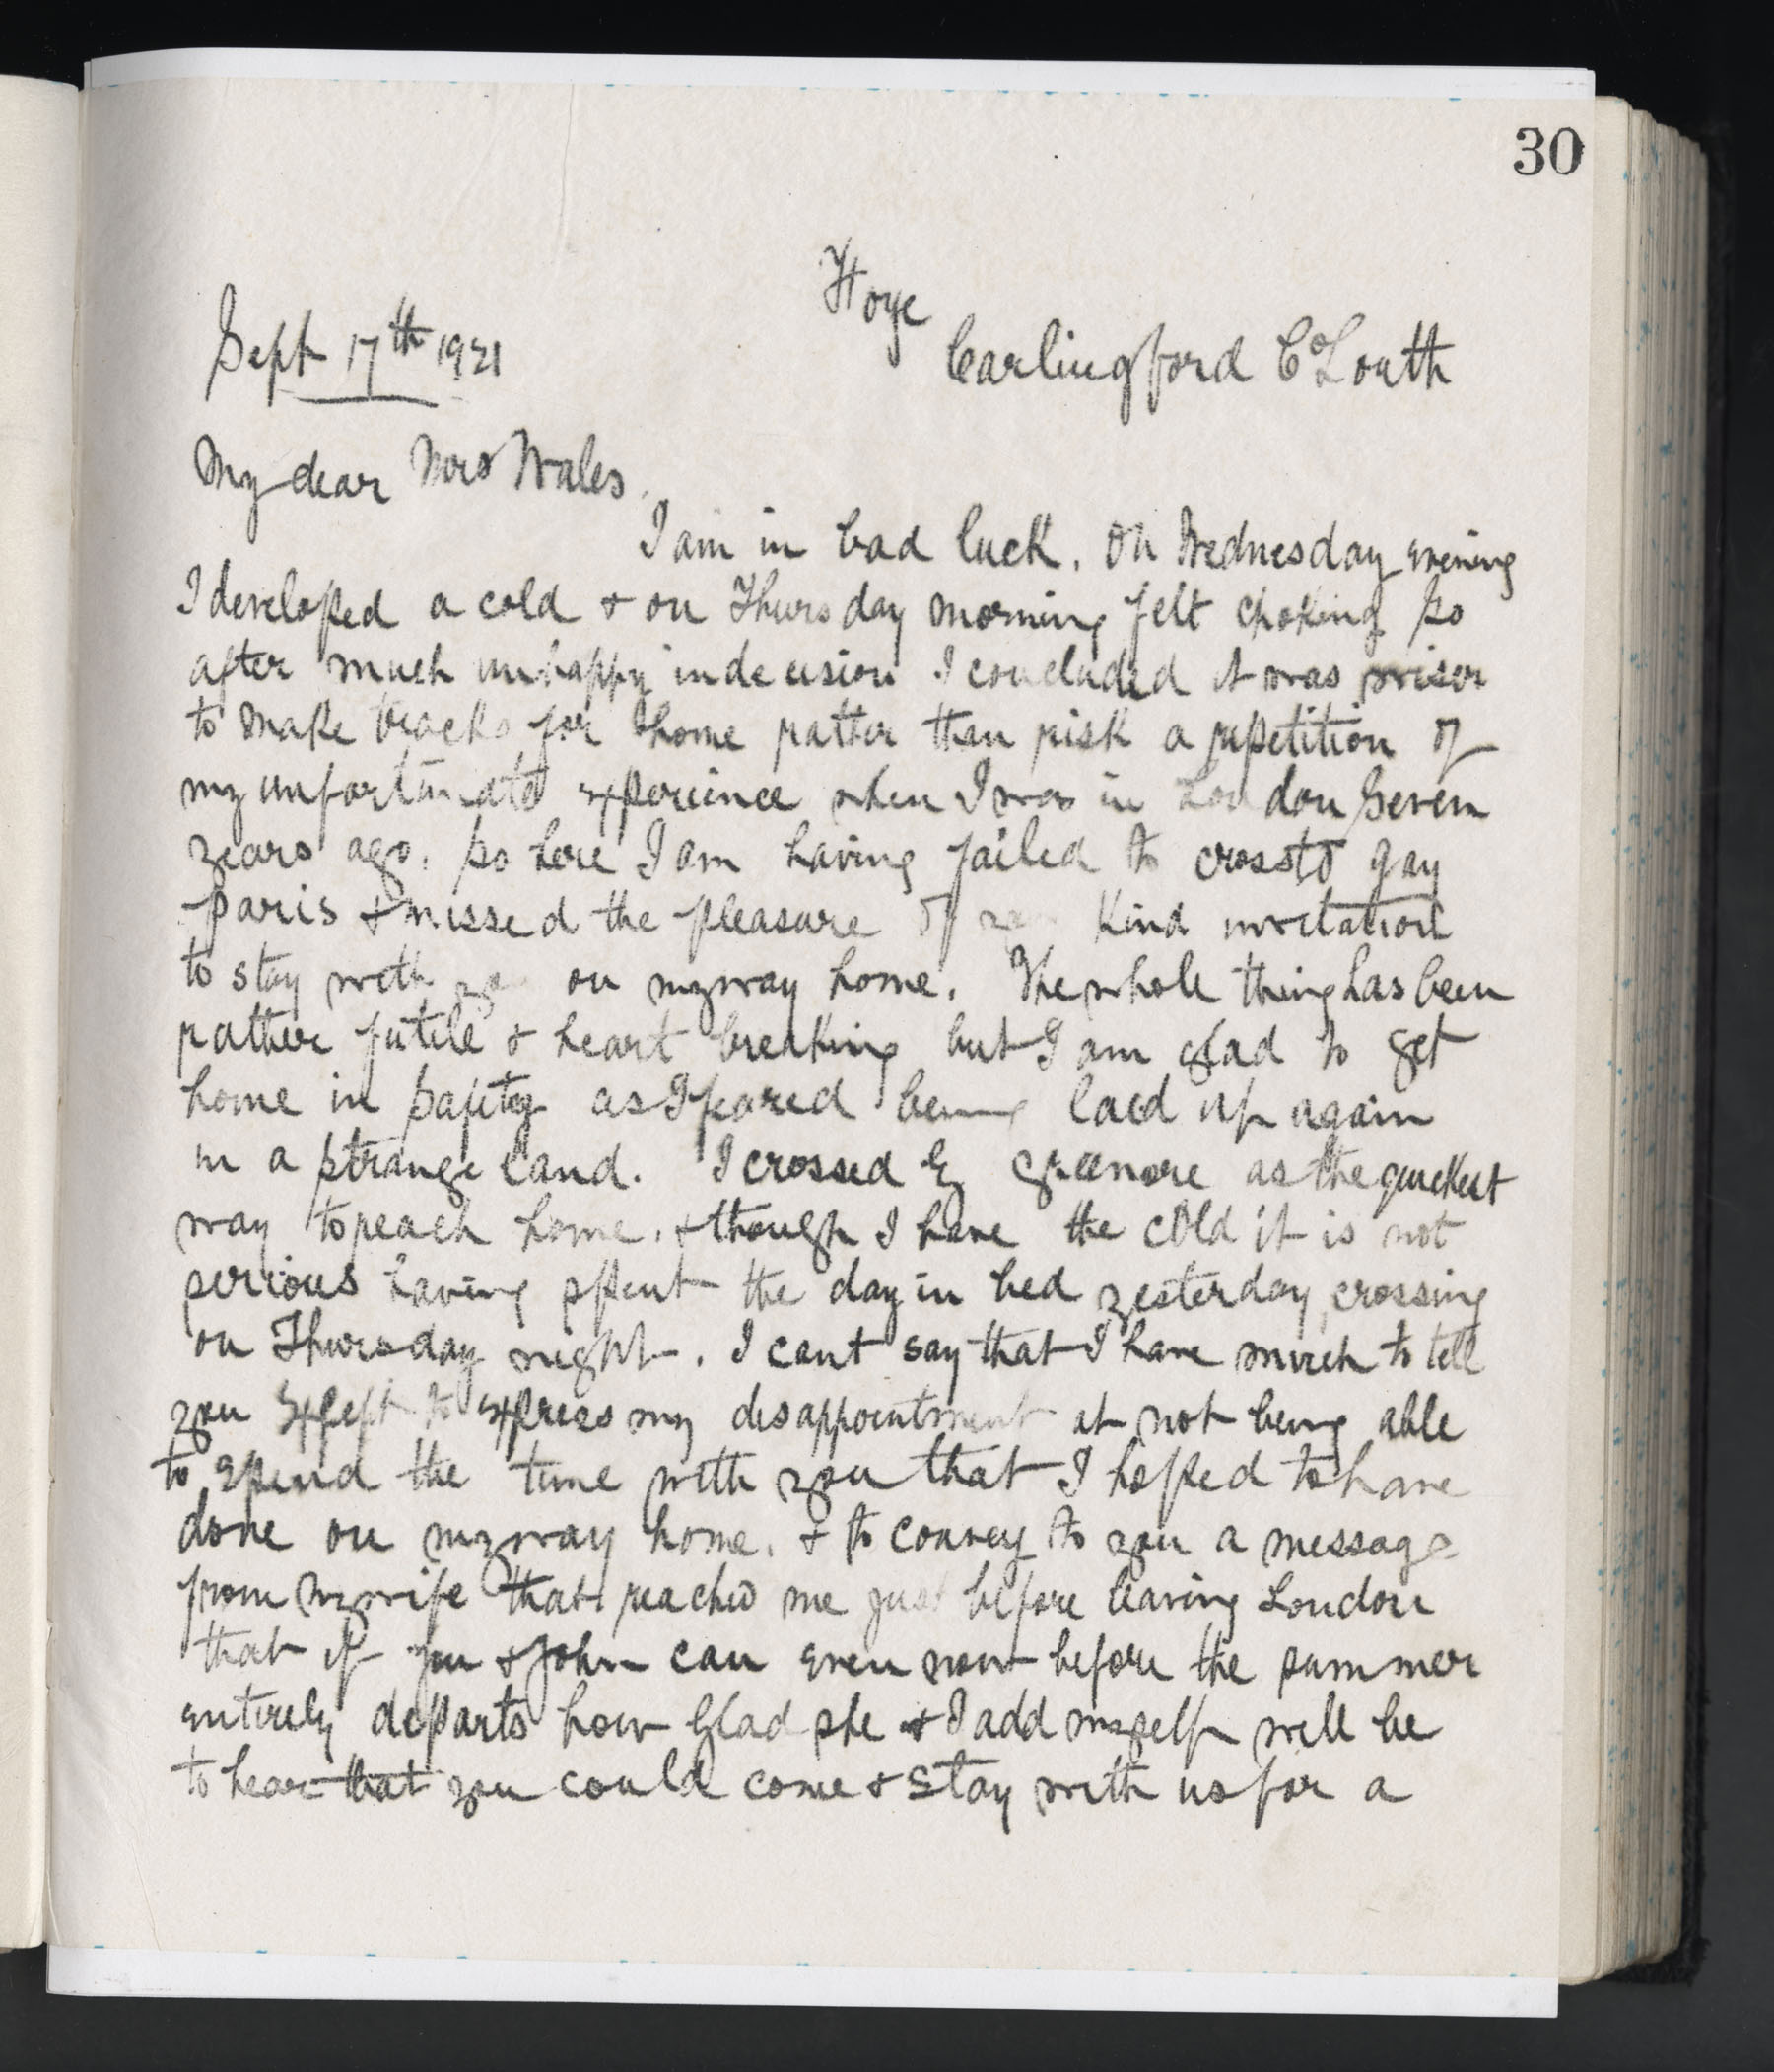 30
Hoye
Sept 17th 1921
Carlingford Co Louth
My dear Mrs Wales,
I am in bad luck. On Wednesday evening
I developed a cold & on Thursday morning felt choking so
after much unhappy indecision I concluded it was wiser
to make tracks for home rather than risk a repetition of
my unfortunate experience when I was in London seven
years ago. So here I am having failed to cross to gay
Paris & missed the pleasure of kind invitation
to stay with on my way home. The whole thing has been
rather futile & heart breaking but I am glad to get
home in safety as I feared being laid up again
in a strange land. I crossed by Greenore as the quickest
way to reach home. & though I have the cold it is not
serious having spent the day in bed yesterday, crossing
on Thursday night. I cant say that I have much to tell
you except to express my disappointment at not being able
to spend the time with you that I hoped to have
done on my way home. & to convey to you a message
from my wife that reached me just before leaving London
that if you & John can even now before the summer
entirely departs how glad she & I add myself will be
to hear that you could come & stay with us for a